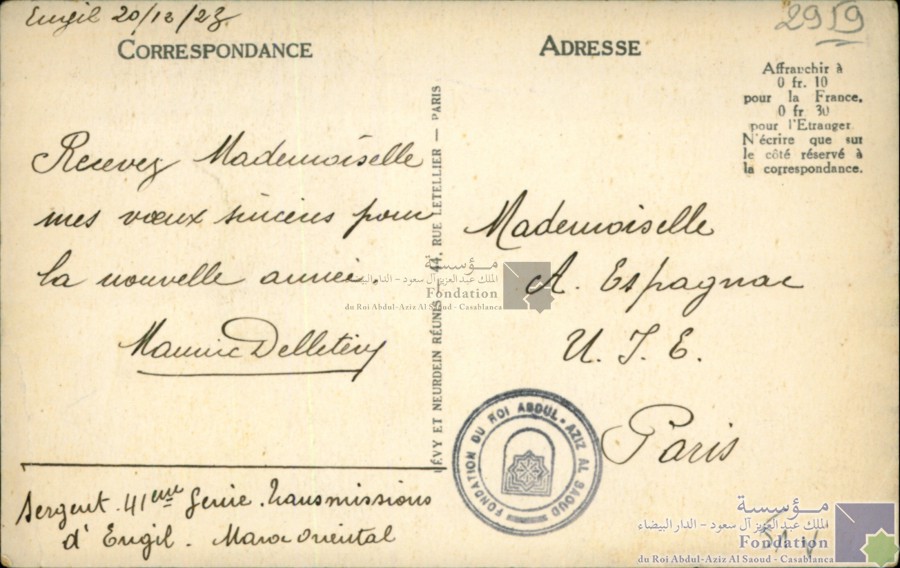 Engil 20/12/23
2959
CORRESPONDANCE
ADRESSE
Affranchir à
0 fr. 10
pour la France,
0 fr 30
pour l'Etranger
N'écrire que sur
le côté réservé à
la correspondance.
Recevez Mademoiselle
mes vœux sincères pour
la nouvelle année.
Maurice
Sergent. 41eme Genie. Transmissions
d'Engil. Maroc Oriental
LÉVY ET NEURDEIN RÉUNIS — 44, RUE LETELLIER — PARIS
Mademoiselle
A. Espagnac
U. J. E.
Paris
مؤسسة
الملك عبد العزيز آل سعود - الدار البيضاء
Fondation
du Roi Abdul-Aziz Al Saoud - Casablanca
FONDATION DU ROI ABDUL-AZIZ AL SAOUD
مؤسسة
الملك عبد العزيز آل سعود - الدار البيضاء
Fondation
du Roi Abdul-Aziz Al Saoud - Casablanca